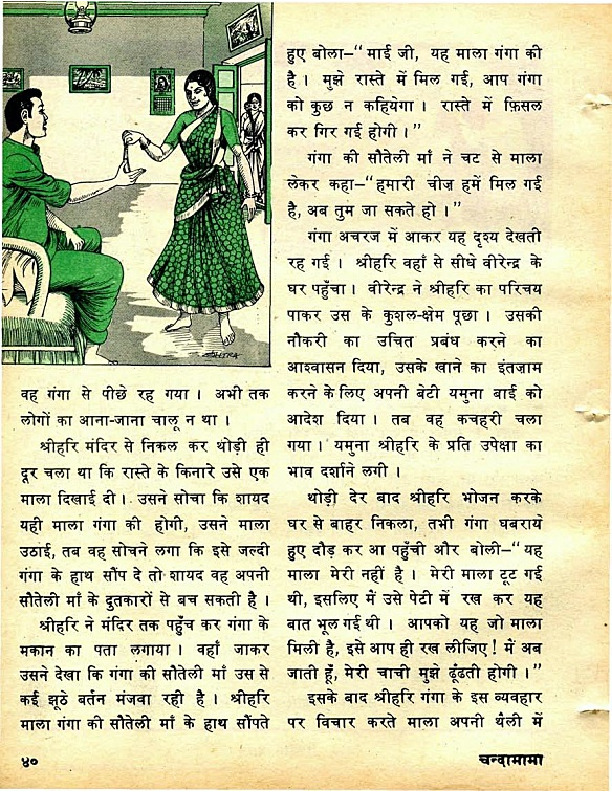 वह गंगा से पीछे रह गया। अभी तक
लोगों का आना-जाना चालू न था।
श्रीहरि मंदिर से निकल कर थोड़ी ही
दूर चला था कि रास्ते के किनारे उसे एक
माला दिखाई दी। उसने सोचा कि शायद
यही माला गंगा की होगी, उसने माला
उठाई, तब वह सोचने लगा कि इसे जल्दी
गंगा के हाथ सौंप दे तो शायद वह अपनी
सौतेली माँ के दुतकारों से बच सकती है।
श्रीहरि ने मंदिर तक पहुँच कर गंगा के
मकान का पता लगाया। वहाँ जाकर
उसने देखा कि गंगा की सौतेली माँ उस से
कई झूठे बर्तन मंजवा रही है। श्रीहरि
माला गंगा की सौतेली माँ के हाथ सौंपते
हुए बोला–“माई जी, यह माला गंगा की
है। मुझे रास्ते में मिल गई, आप गंगा
को कुछ न कहियेगा। रास्ते में फ़िसल
कर गिर गई होगी।”
गंगा की सौतेली माँ ने चट से माला
लेकर कहा–“हमारी चीज़ हमें मिल गई
है, अब तुम जा सकते हो।”
गंगा अचरज में आकर यह दृश्य देखती
रह गई। श्रीहरि वहाँ से सीधे वीरेन्द्र के
घर पहुँचा। वीरेन्द्र ने श्रीहरि का परिचय
पाकर उस के कुशल-क्षेम पूछा। उसकी
नौकरी का उचित प्रबंध करने का
आश्वासन दिया, उसके खाने का इंतज़ाम
करने के लिए अपनी बेटी यमुना बाई को
आदेश दिया। तब वह कचहरी चला
गया। यमुना श्रीहरि के प्रति उपेक्षा का
भाव दर्शाने लगी।
थोड़ी देर बाद श्रीहरि भोजन करके
घर से बाहर निकला, तभी गंगा घबराये
हुए दौड़ कर आ पहुँची और बोली–“यह
माला मेरी नहीं है। मेरी माला टूट गई
थी, इसलिए मैं उसे पेटी में रख कर यह
बात भूल गई थी। आपको यह जो माला
मिली है, इसे आप ही रख लीजिए! में अब
जाती हूँ, मेरी चाची मुझे ढूंढती होगी।”
इसके बाद श्रीहरि गंगा के इस व्यवहार
पर विचार करते माला अपनी थैली में
४०
चन्दामामा